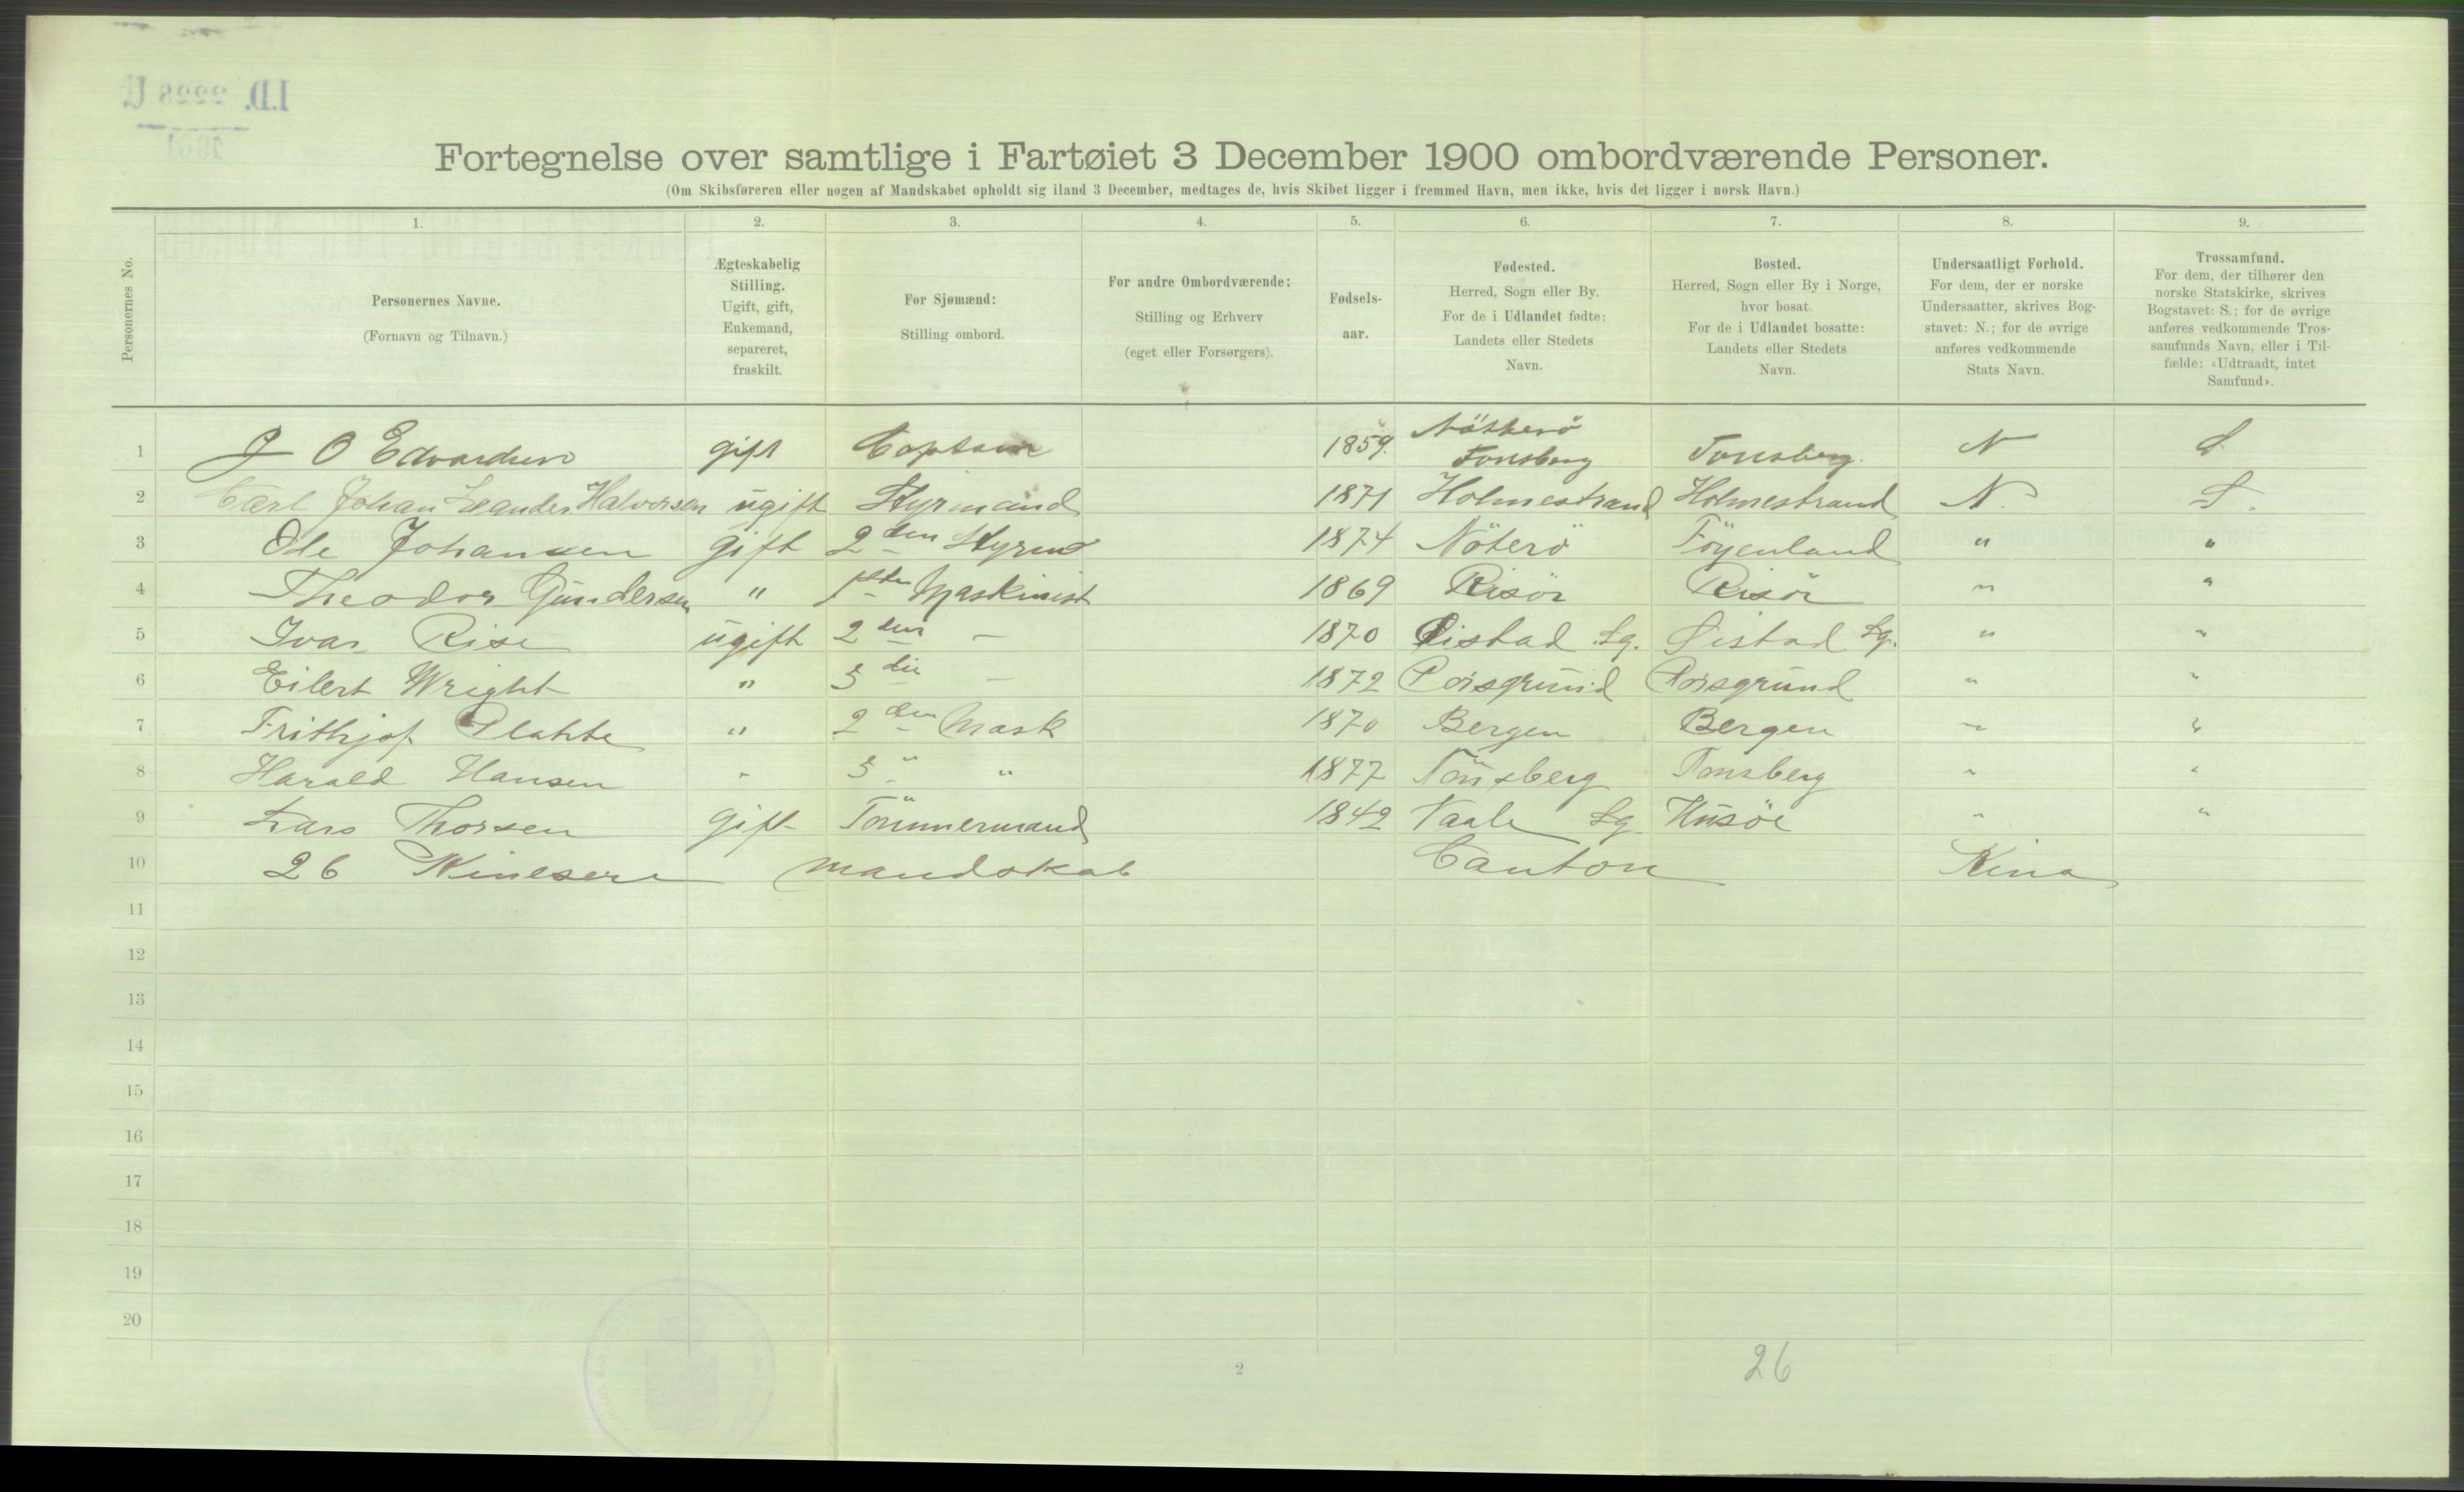 I.D. 2228 U.
1901
Fortegnelse over samtlige i Fartøiet 3 December 1900 ombordværende Personer.
(Om Skibsføreren eller nogen af Mandskabet opholdt sig iland 3 December, medtages de, hvis Skibet ligger i fremmed Havn, men ikke, hvis det ligger i norsk Havn.)
Personernes No.
1. 2. 3. 4. 5. 6. 7. 8. 9.
Personernes Navne.
(Fornavn og Tilnavn.)
Ægteskabelig
Stilling.
Ugift, gift,
Enkemand,
separeret,
fraskilt.
For Sjømænd:
Stilling ombord.
For andre Ombordværende:
Stilling og Erhverv
(eget eller Forsørgers).
Fødsels-
aar.
Fødested.
Herred, Sogn eller By.
For de i Udlandet fødte:
Landets eller Stedets
Navn.
Bosted.
Herred, Sogn eller By i Norge,
hvor bosat.
For de i Udlandet bosatte:
Landets eller Stedets
Navn.
Undersaatligt Forhold.
For dem, der er norske
Undersaatter, skrives Bog-
stavet: N.; for de øvrige
anføres vedkommende
Stats Navn.
Trossamfund.
For dem, der tilhører den
norske Statskirke, skrives
Bogstavet: S.; for de øvrige
anføres vedkommende Tros-
samfunds Navn, eller i Til-
fælde: «Udtraadt, intet
Samfund».
Nötterö
1 J O Edvardsen gift Captain 1859. Tonsberg Tonsberg. N S
2 Carl Johan Leander Halvorsen ugift Styrmand 1871 Holmestrand Holmestrand N. S.
3 Ole Johansen gift 2den Styrmd 1874 Nöterö Föyenland " "
4 Theodor Gundersen " 1ste Maskinist 1869 Risör Risör " "
5 Ivar Rise ugift 2den — 1870 Öistad Sg. Öistad Sg. " "
6 Eilert Wright " 3die — 1872 Porsgrund Porsgrund " "
7 Frithjof Plahte " 2den Mask 1870 Bergen Bergen " "
8 Harald Hansen " 3 " " 1877 Tönsberg Tonsberg " "
9 Lars Thorsen gift Tömmermand 1842 Vaale Sg. Husöe " "
10 26 Kinesere mandskab Canton Kina
11
12
13
14
15
16
17
18
19
20
2
26